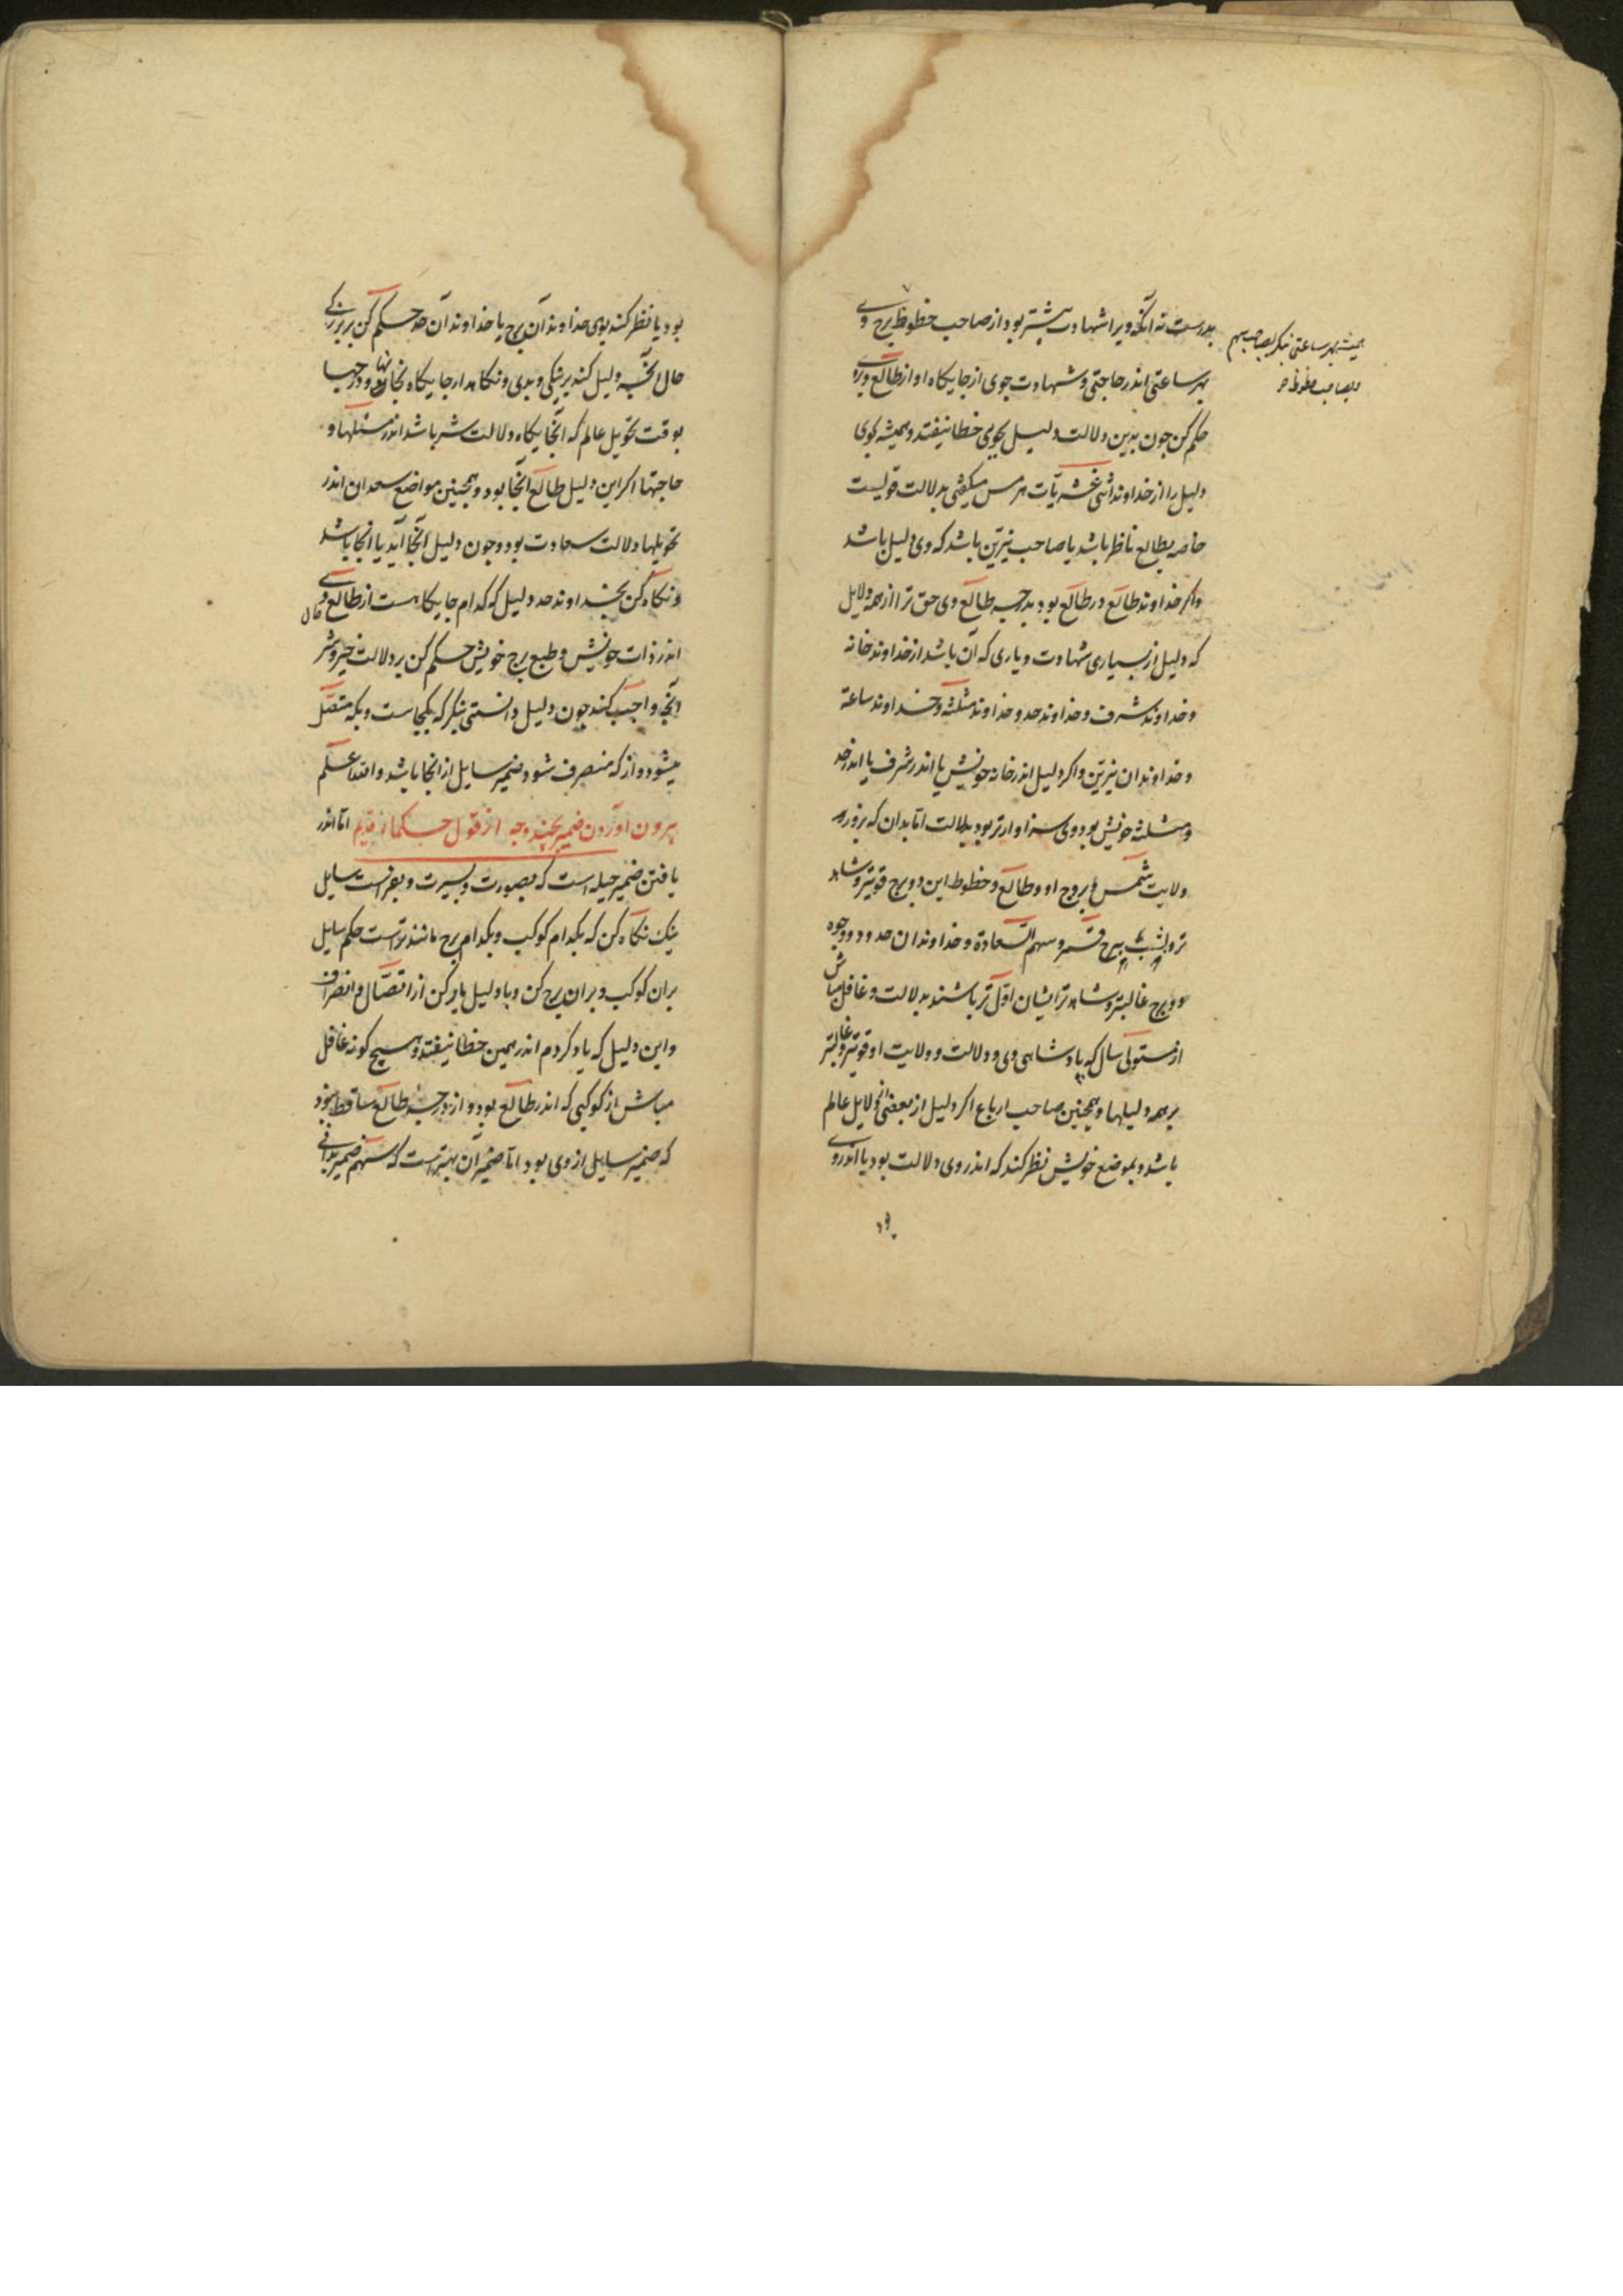 بدرستی نه آنکه ویرا شهادت بیشتر بود از صاحب حظوظ برج وی
همیشه بهر ساعتی بنگر بصاحب سهم
وبصاحب حظوظ
بهر ساعتی اندر حاجتی وشهادت جوی از جایگاه او از طالع
حکم کن جون بدین دلالت دلیل بجویی خطا نیفتد وهمیشه بجوی
دلیل را از خداوند اثنی عشریات هرمس میگفتی بدلالت قویست
خاصه بطالع ناظر باشد یا صاحب نیرین باشد که وی دلیل باشد
واکر خداوند طالع در طالع بود بدرجه طالع وی حق تر از همه دلایل
که دلیل از بسیاری شهادت ویاری که آن باشد از خداوند خانه
وخداوند شرف وخداوند حد وخداوند مثلثه وخداوند ساعة
وخداوندان نیرین واکر دلیل اندر خانه خویش یا اندر شرف یا اندر حد
ومثلثه خویش بود وی سزاوارتر بود بدلالت اما بدان که بروز
ولایت شمس وبروج او وطالع وحظوظ این دو برج قویتر وشاهد
تر وبشب برج قمر وسهم السعادة وخداوندان حدود ووجوه
دو برج غالبتر وشاهدتر ایشان اول تر باشند بدلالت وغافل مباش
از مستولی سال که پادشاهی وی ودلالت وولایت او قویتر وغالبتر
بر همه دلیلها وهمچنین صاحب ارباع اکر دلیل از بعضی دلایل عالم
باشد وبموضع خویش نظر کند که اندر وی دلالت بود یا اندر وی
بود
بود یا نظر کند بوی خداوند آن برج یا خداوند آن حد حکم کن بر بزرکی
حال آنچه دلیل کند بر نیکی وبدی ونگاهدار جایگاه نحسان ودرجها
بوقت تحویل عالم که آنجایگاه دلالت شر باشد اندر مسئلها و
حاجتها اکر این دلیل طالع آنجا بود وهمچنین مواضع سعدان اندر
تحویلها دلالت سعادت بود وجون دلیل آنجا آید یا آنجا باشد
ونگاه کن بخداوند حد دلیل که کدام جایگاهست از طالع وی
اندر ذات خویش وطبع برج خویش حکم کن بر دلالت خیر وشر
آنچه واجب کند جون دلیل دانستی بنکر که بکجاست وبکه متصل
میشود واز که منصرف شود ضمیر سایل از انجا باشد والله اعلم
بیرون آوردن ضمیر بچند وجه از قول حکماء قدیم اما اندر
یافتن ضمیر حیله است که بصورت وبسیرت وبفراست سایل
نیک نگاه کن که بکدام کوکب وبکدام برج مانندتراست حکم سایل
بران کوکب وبران برج کن وبا دلیل یار کن از اتصال وانصراف
واین دلیل که یاد کردم اندر همین خطا نیفتد وهیچ کونه غافل
مباش از کوکبی که اندر طالع بود واز درجه طالع ساقط نبود
که ضمیر سایل از وی بود اما ضمیر آن بهتراست که سهم ضمیر بدانی